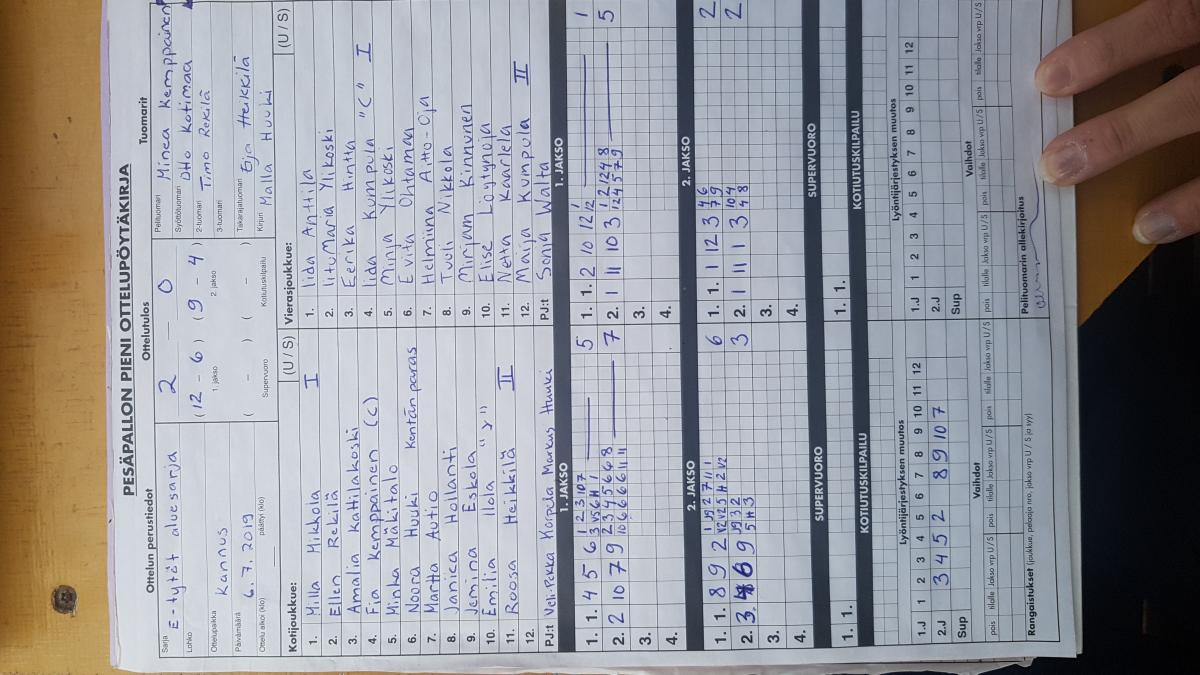 PESÄPALLON PIENI OTTELUPÖYTÄKIRJA
Ottelun perustiedot
Sarja E-tytöt aluesarja
Lohko
Ottelupaikka Kannus
Päivämäärä 6.7.2019
Ottelu alkoi (klo) päättyi (klo)
Ottelutulos
2 – 0
(12 – 6) (9 – 4)
1. jakso 2. jakso
( – ) ( – )
Supervuoro Kotiutuskilpailu
Tuomarit
Pelituomari Minea Kemppainen
Syöttötuomari Otto Kotimaa
2-tuomari Timo Rekilä
3-tuomari
Takarajatuomari Eija Heikkilä
Kirjuri Malla Huuki
Kotijoukkue: (U / S)
1. Milla Mickola I
2. Ellen Rekilä
3. Amalia Kattilakoski
4. Fia Kemppainen (C)
5. Minka Mäkitalo
6. Noora Huuki Kentänparas
7. Martta Autio
8. Janica Hollanti
9. Jemina Eskola
10. Emilia Ilola
11. Roosa Heikkilä II
12.
PJ:t Veli-Pekka Korpela Markus Huuki
Vierasjoukkue: (U / S)
1. Iida Anttila
2. IituMaria Ylikoski
3. Eerika Hintta
4. Iida Kumpula "C" I
5. Minja Ylikoski
6. Evita Ohtamaa
7. Helmiina Aitto-Oja
8. Tuuli Nikkola
9. Mirjam Kinnunen
10. Elise Löytynoja
11. Netta Kaarlela
12. Maija Kumpula II
PJ:t Sonja Walta
1. JAKSO
1. 1. 4 5 6 5
2. 2 10 7 9 7
3.
4.
1. JAKSO
1. 1. 2 10 12 1
2. 1 11 10 3 5
3.
4.
2. JAKSO
1. 1. 8 9 2 6
2. 3 6 9 3
3.
4.
2. JAKSO
1. 1. 1 12 3 2
2. 1 11 1 3 2
3.
4.
SUPERVUORO
1. 1.
SUPERVUORO
1. 1.
KOTIUTUSKILPAILU
KOTIUTUSKILPAILU
Lyöntijärjestyksen muutos
1.J 1 2 3 4 5 6 7 8 9 10 11 12
2.J 3 4 5 2 8 9 10 7
Sup
Lyöntijärjestyksen muutos
1.J 1 2 3 4 5 6 7 8 9 10 11 12
2.J
Sup
Vaihdot
pois tilalle Jakso vrp U / S pois tilalle Jakso vrp U / S pois tilalle Jakso vrp U / S
Vaihdot
pois tilalle Jakso vrp U / S pois tilalle Jakso vrp U / S pois tilalle Jakso vrp U / S
Rangaistukset (joukkue, pelaaja nro, jakso vrp, U / S ja syy)
Pelituomarin allekirjoitus